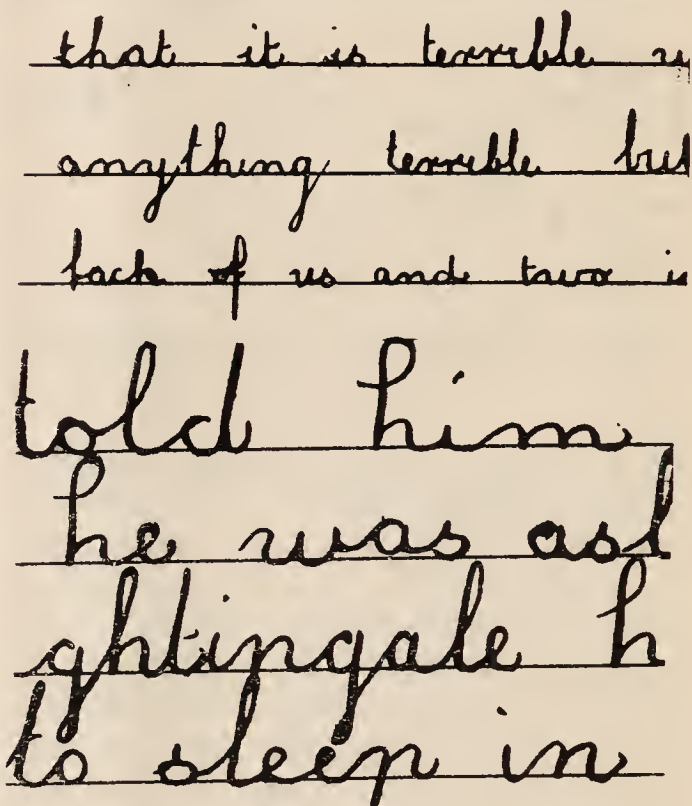 that it is terrible
anything terrible but
back of us and two
told him
he was asl
ghtingale h
to sleep in